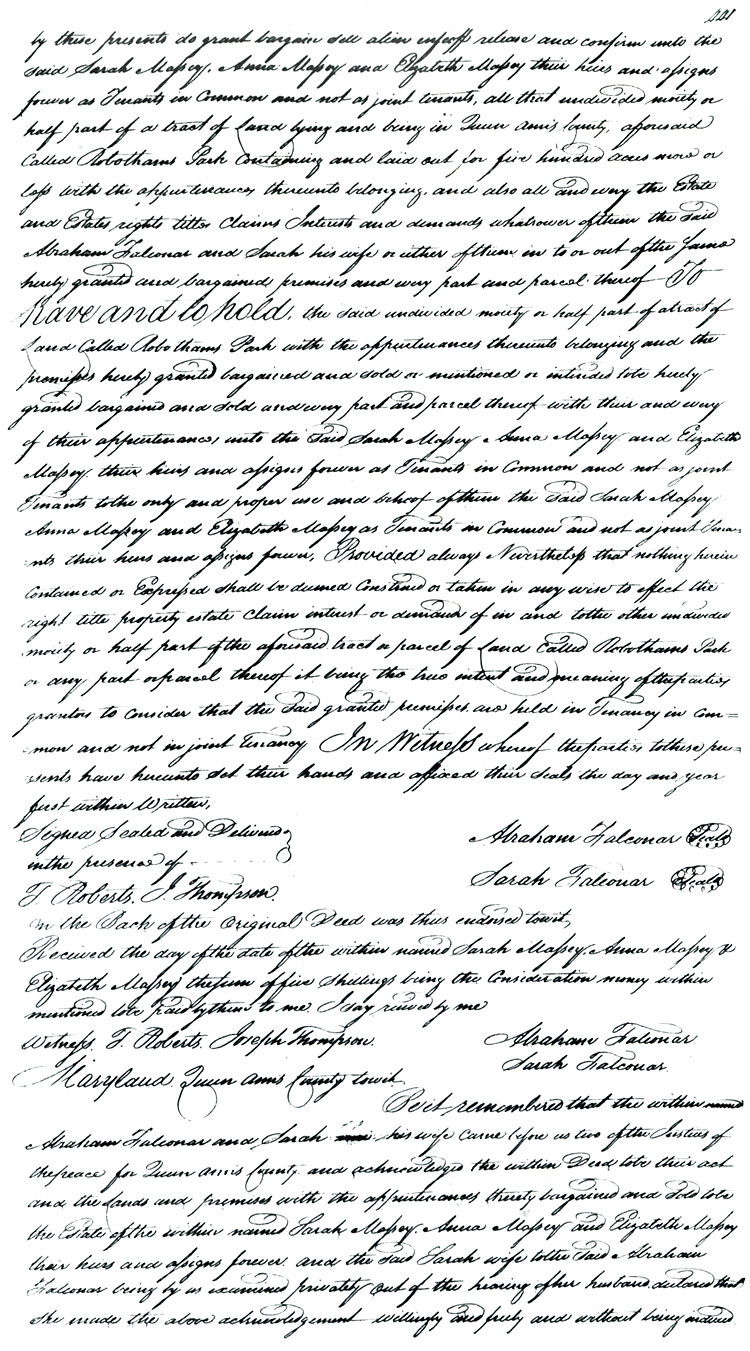 221
by these presents do grant bargain sell alien enfeoff release and confirm unto the
said Sarah Massey, Anna Massey and Elizabeth Massey their heirs and assigns
forever as Tenants in Common and not as joint tenants, all that undivided moiety or
half part of a tract of Land lying and being in Queen Anns County, aforesaid
Called Robothams Park Containing and laid out for five hundred acres more or
less with the appurtenances thereunto belonging, and also all and every the Estate
and Estates rights titles Claims Interests and demands whatsoever of them the Said
Abraham Falconar and Sarah his wife or either of them in to or out of the Same
hereby granted and bargained premises and every part and parcel thereof To
have and to hold, the said undivided moiety or half part of a tract of
Land Called Robothams Park with the appurtenances thereunto belonging and the
premises hereby granted bargained and sold or mentioned or intended tobe hereby
granted bargained and sold and every part and parcel thereof with their and every
of their appurtenances unto the Said Sarah Massey Anna Massey and Elizabeth
Massey their heirs and assigns forever as Tenants in Common and not as joint
Tenants tothe only and proper use and behoof of them the Said Sarah Massey
Anna Massey and Elizabeth Massey as Tenants in Common and not as joint Tena-
nts their heirs and assigns forever, Provided always Nevertheless that nothing herein
Contained or Expressed shall be deemed Construed or taken in any wise to effect the
right title property estate Claim interest or demand of in and tothe other undivided
moiety or half part of the aforesaid tract or parcel of Land Called Robothams Park
or any part or parcel thereof it being the true intent and meaning of the parties
grantors to Consider that the Said granted premises are held in Tenancy in Com=
mon and not in joint Tenancy In Witness whereof the parties to these pre=
sents have hereunto set their hands and affixed their Seals the day and year
first within Written,
Signed Sealed and Delivered
in the presence of - - - - - Abraham Falconar Seal
T. Roberts, J. Thompson. Sarah Falconar Seal
on the Back of the Original Deed was thus endorsed towit,
Received the day of the date of the within named Sarah Massey, Anna Massey &
Elizabeth Massey the sum of five Shillings being the Consideration money within
mentioned tobe paid by them to me I say received by me
Witness T. Roberts. Joseph Thompson. Abraham Falconar
Sarah Falconar.
Maryland Queen Anns County towit,
Be it remembered that the within named
Abraham Falconar and Sarah his wife Came before us two of the Justices of
the peace for Queen Anns County and acknowledged the within Deed tobe their act
and the Lands and premises with the appurtenances thereby bargained and Sold tobe
the Estate of the within named Sarah Massey, Anna Massey and Elizabeth Massey
their heirs and assigns forever and the Said Sarah wife tothe Said Abraham
Falconar being by us examined privately out of the hearing of her husband declared that
She made the above acknowledgement willingly and freely and without being induced